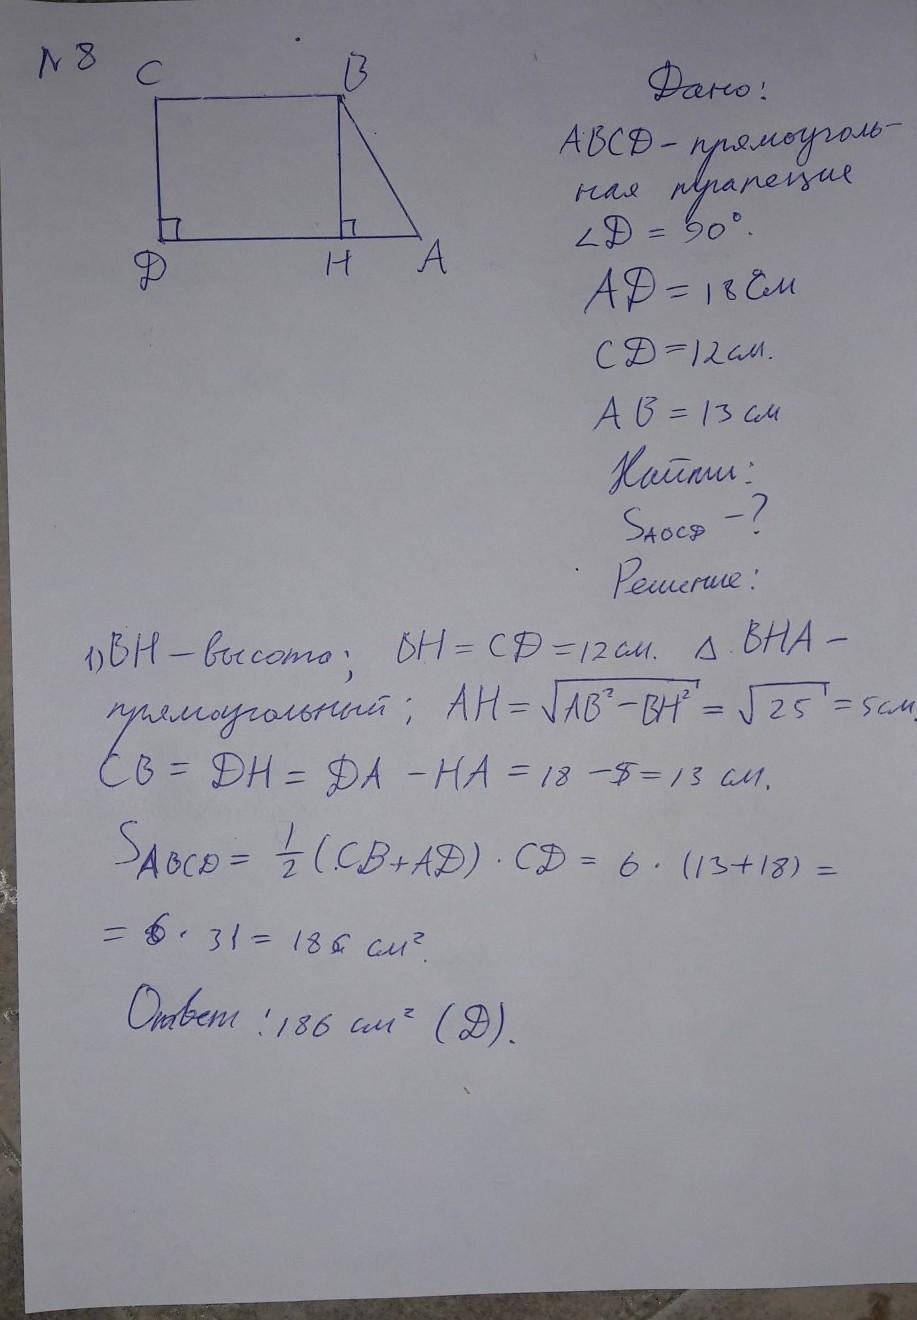 N 8
C B
D H A
Дано:
ABCD - прямоуголь-
ная трапеция
∠D = 90°.
AD = 18 см
CD = 12 см.
AB = 13 см
Найти:
S_ABCD - ?
Решение:
1) BH - высота; BH = CD = 12 см. Δ BHA -
прямоугольный; AH = √AB² - BH² = √25 = 5 см.
CB = DH = DA - HA = 18 - 5 = 13 см.
S_ABCD = 1/2 (CB + AD) · CD = 6 · (13 + 18) =
= 6 · 31 = 186 см².
Ответ: 186 см² (D).